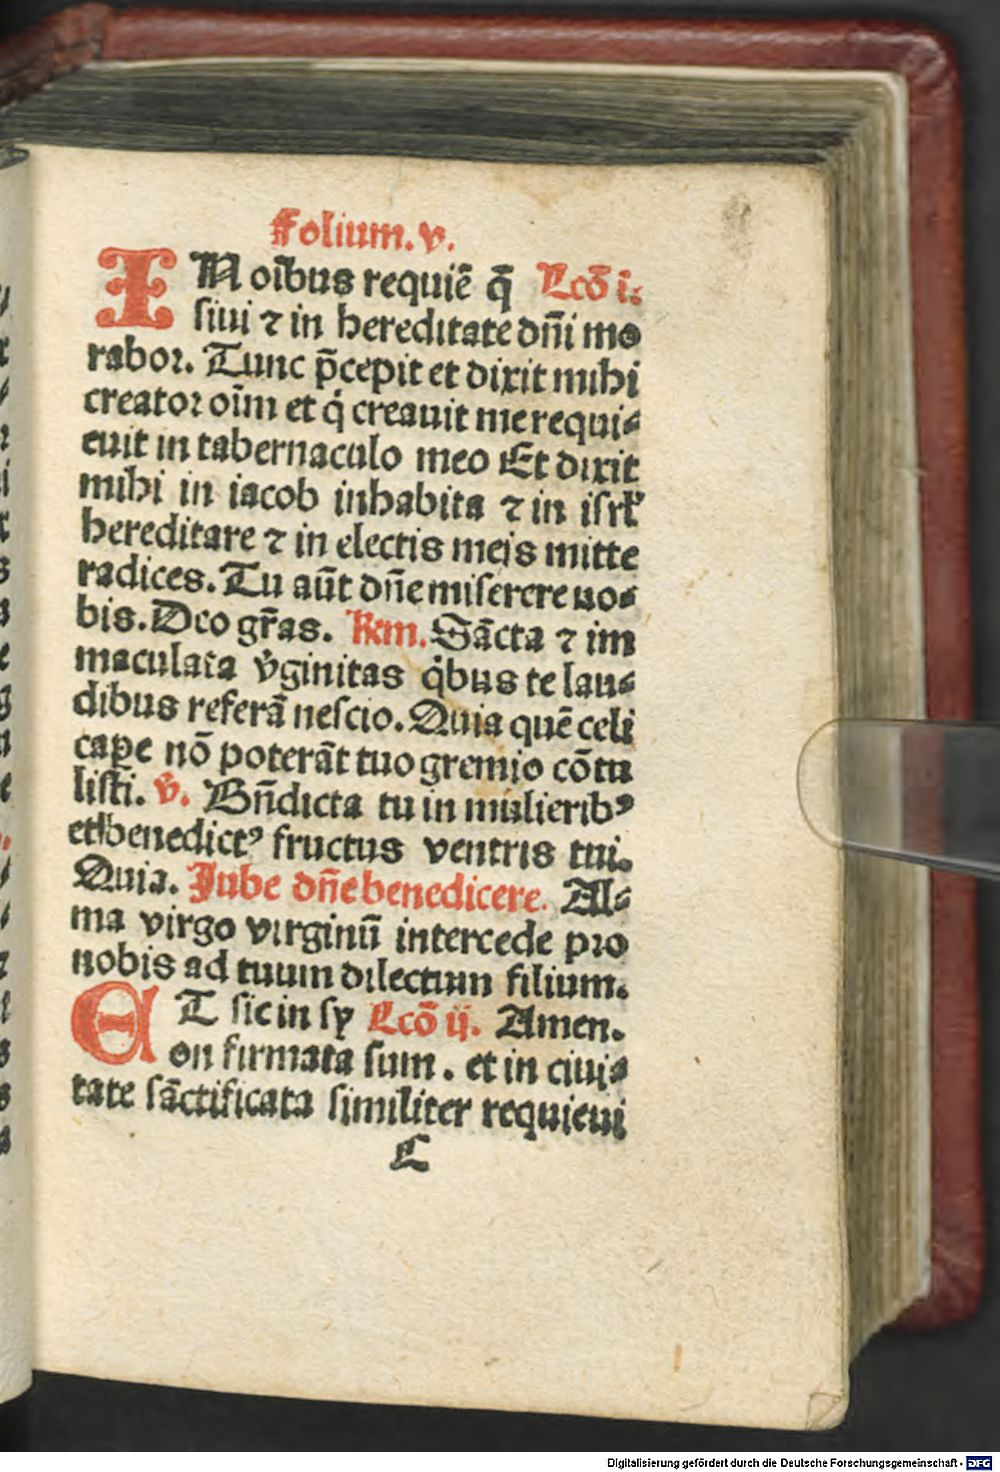 Folium. v.
IN oībus requiē q̄ Lcō i.
siui ⁊ in hereditate dn̄i mo
rabor. Tunc p̄cepit et dixit mihi
creator oīm et q̇ creauit me requi⸗
euit in tabernaculo meo Et dixit
mihi in iacob inhabita ⁊ in isrl̕
hereditare ⁊ in electis meis mitte
radices. Tu aūt dn̄e miserere uo⸗
bis. Deo gr̄as. Rm̄. Sācta ⁊ im
maculata v̇ginitas q̇bus te lau⸗
dibus referā nescio. Quia quē celi
cape nō poterāt tuo gremio cōtu
listi. v. Bn̄dicta tu in mulierib⁹
et benedict⁹ fructus ventris tui.
Quia. Jube dn̄e benedicere. Al⸗
ma virgo virginū intercede pro
nobis ad tuum dilectum filium.
ET sic in sy Lcō ij. Amen.
on firmata sum. et in ciui⸗
tate sāctificata similiter requieui
C
Digitalisierung gefördert durch die Deutsche Forschungsgemeinschaft - DFG